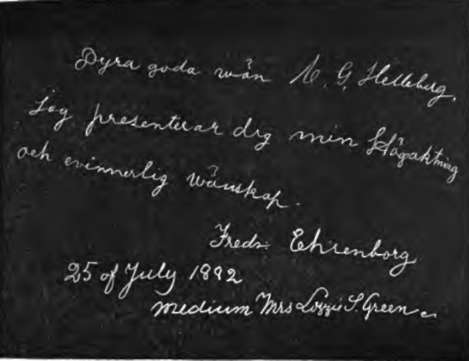 Dyra goda wän C. G. Helleberg.
Jag presenterar dig min Högaktning
och evinnerlig wänskap.
Fredr. Ehrenborg
25 of July 1882
medium Mrs Lizzie S. Green